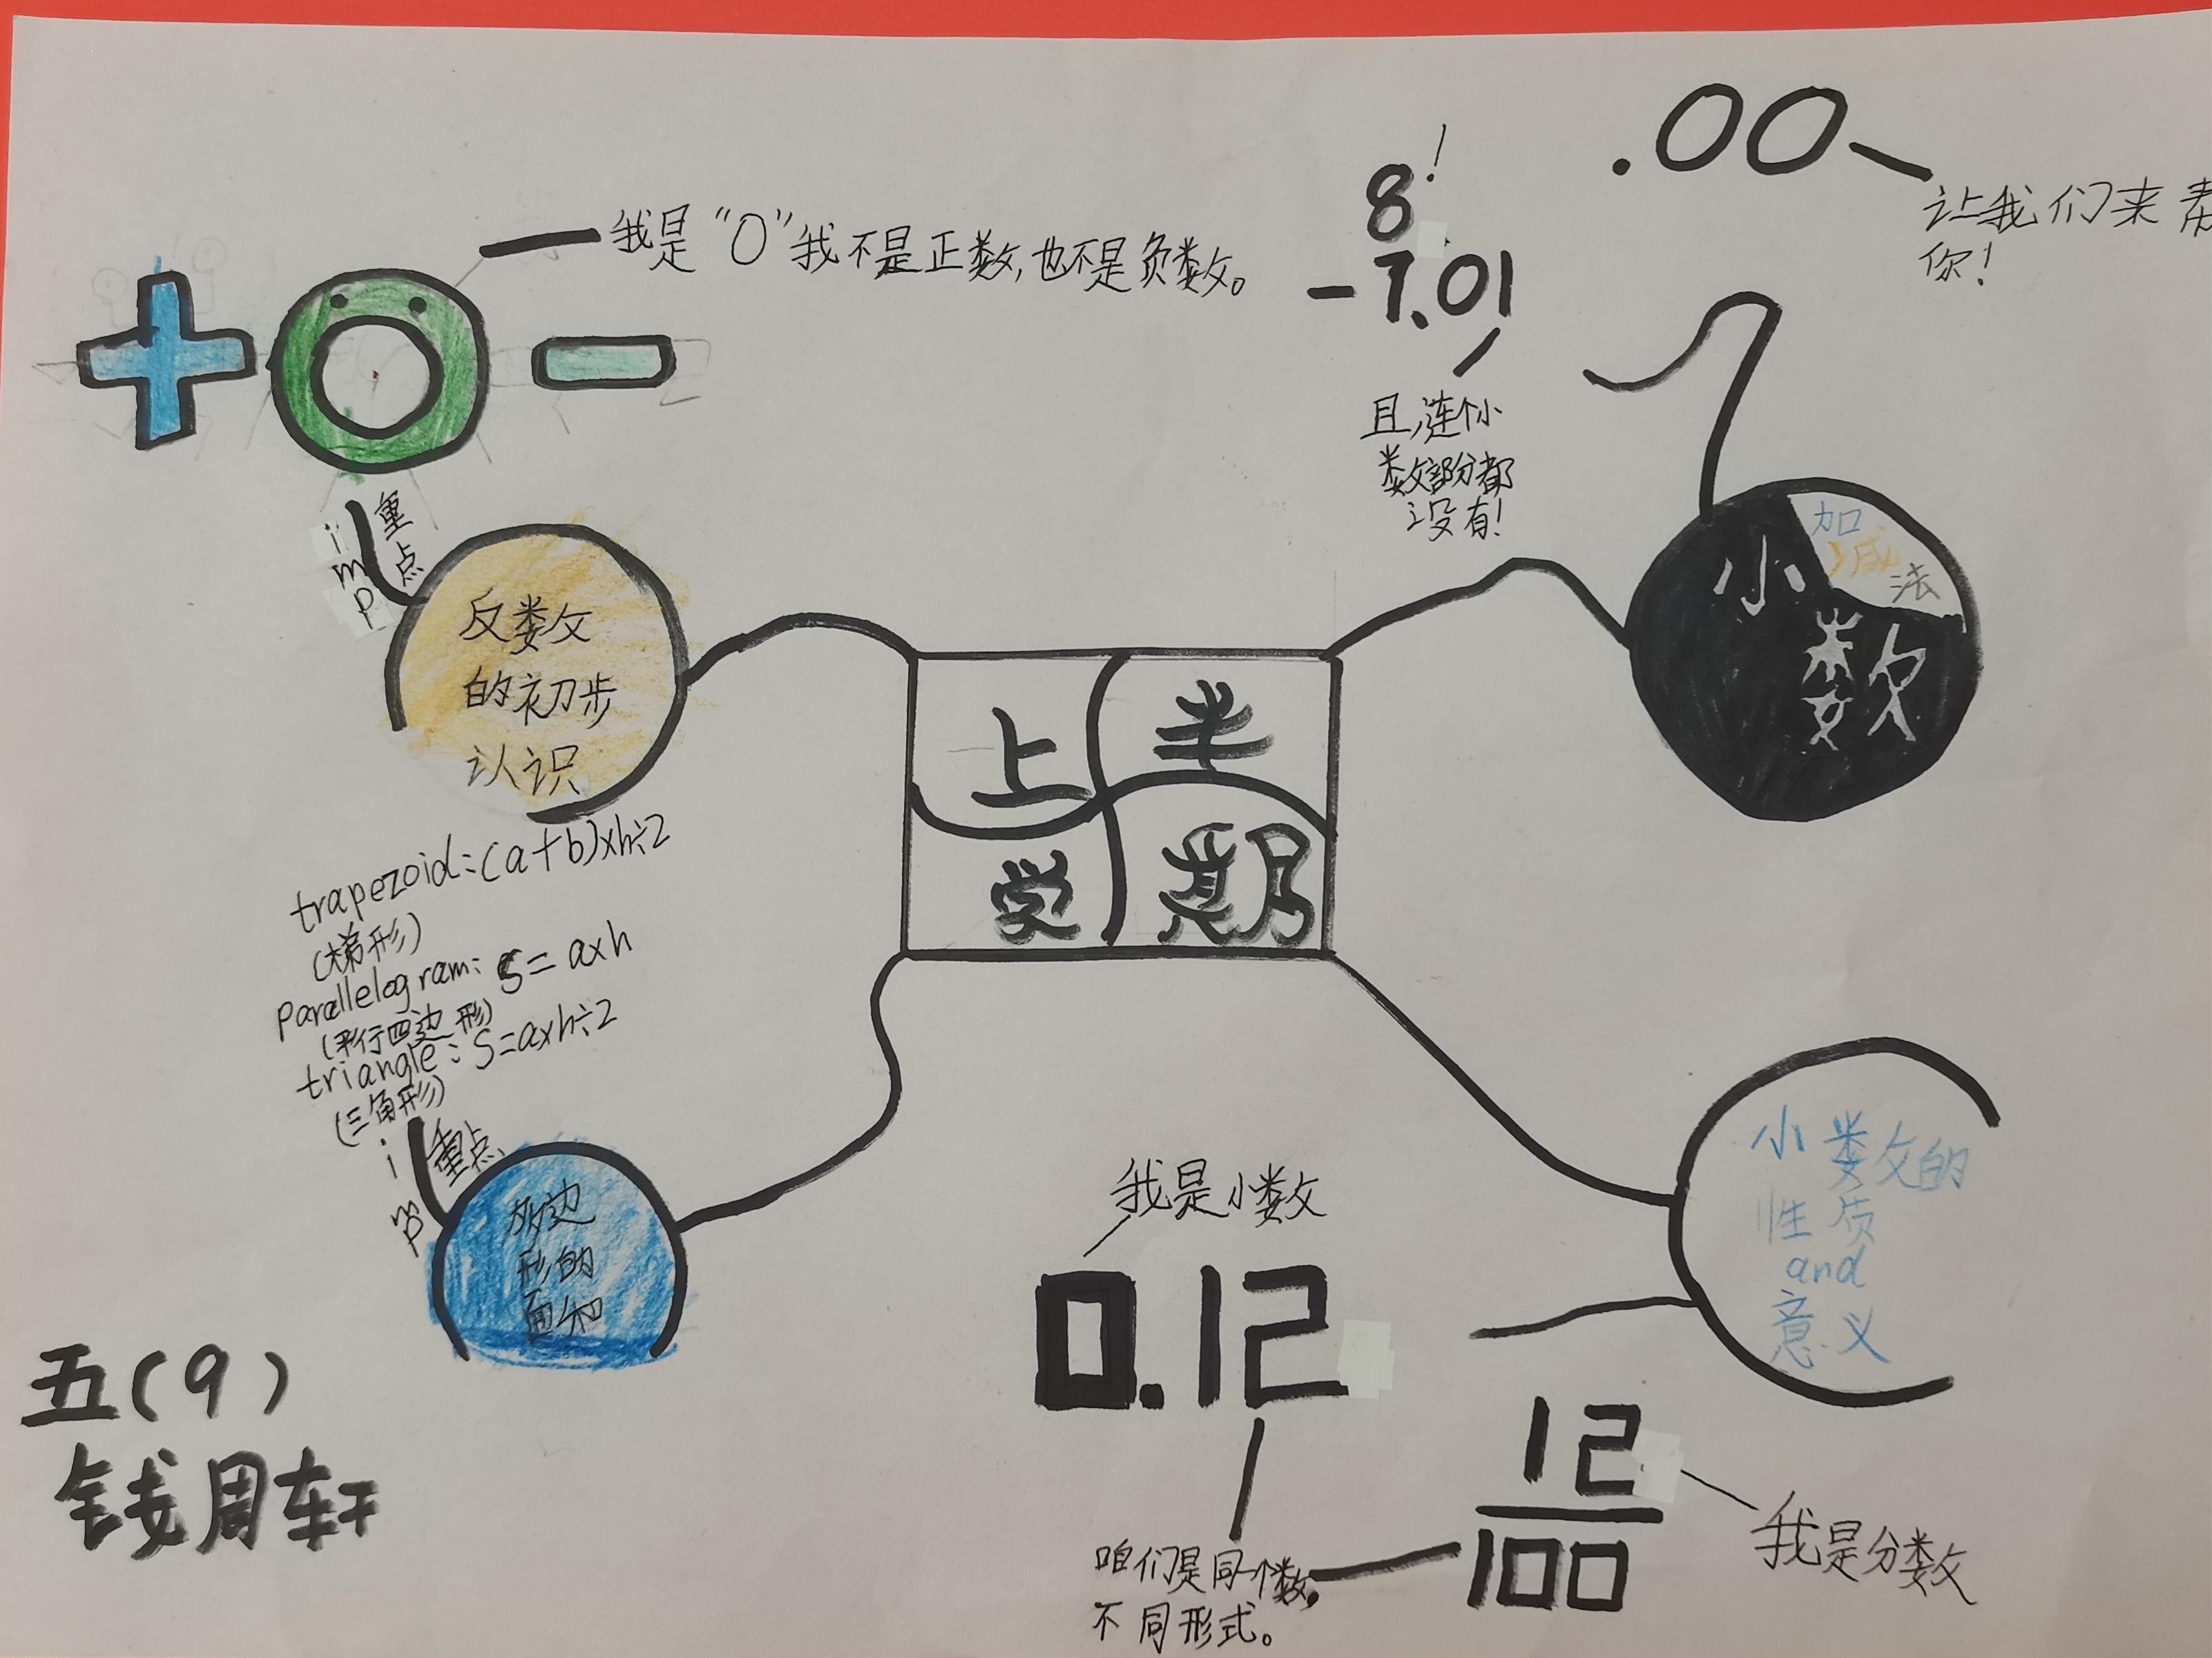 我是“0”我不是正数,也不是负数。
+ 0 -
重点
imp
反数
的初步
认识
8!
-7.01
且,连个小
数部分都
没有!
.00
让我们来帮
你!
小数
加
减
法
上半
学期
trapezoid:(a+b)×h÷2
(梯形)
parallelogram: S=a×h
(平行四边形)
triangle: S=a×h÷2
(三角形)
重点
imp
多边
形的
面积
小数的
性质
and
意义
我是小数
0.12
12
100
我是分数
咱们是同一个数,
不同形式。
五(9)
钱周轩